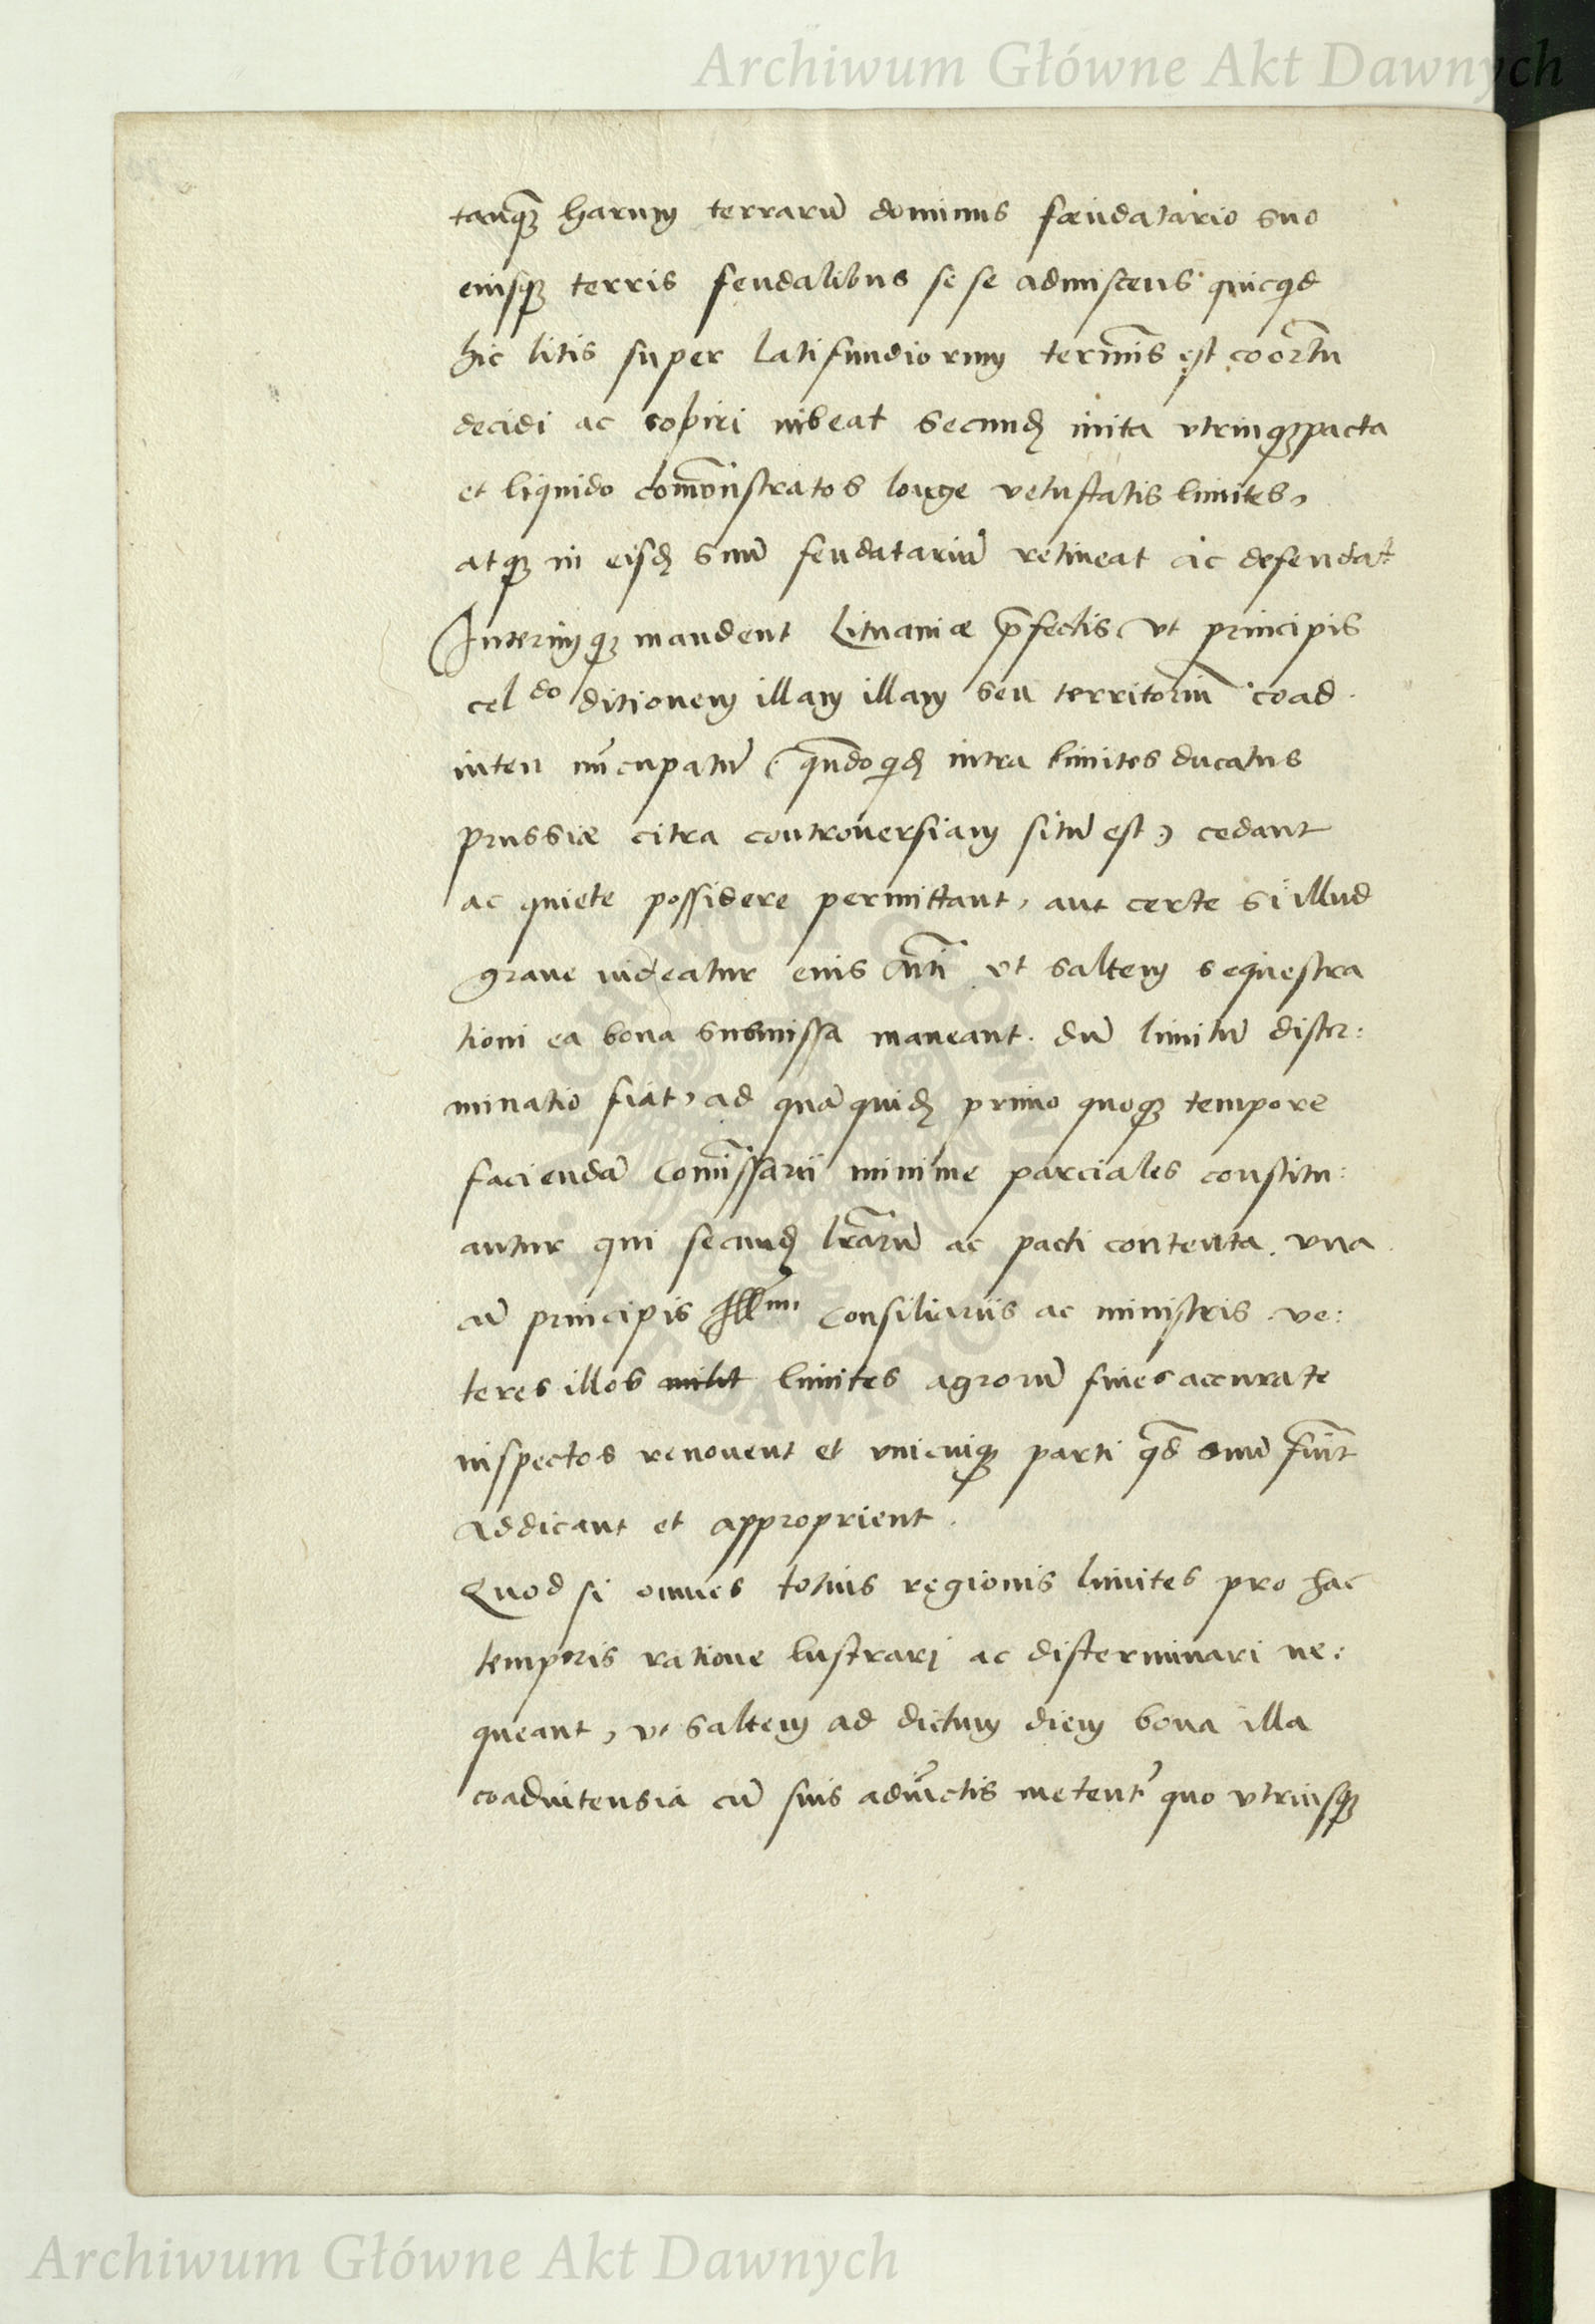 Archiwum Główne Akt Dawnych
tanq̃ harum terrarũ dominus fœudatario suo
eiusq3 terris feudalibus se se admiscens quicqd
hic litis super latifundiorum termĩs est coortũ
decidi ac sopiri iubeat secundũ inita vtrinq3 pacta
et liquido comõnstratos longe vetustatis limites,
atq3 in eisdẽ suũ feudatariũ retineat ac defendat
Interimq3 mandent Lituaniæ p̃fectis, vt principis
cel do ditionem illam illam seu territoriũ coad
iuten nũcupatũ (quãdoqdẽ intra limites ducatus
Prussiæ citra controuersiam situ͂ est) cedant
ac quiete possidere permittant, aut certe si illud
graue uideatur eius M̃ti vt saltem sequestra
tioni ea bona submissa maneant. dũ limitũ dister:
minatio fiat, ad quã quidẽ primo quoq3 tempore
faciendã Com̃issarii minime parciales constitu:
antur qui secundũ lr̃arũ ac pacti contenta, vna
cũ principis Illmi Consiliariis ac ministris ve:
teres illos limites agrorũ fines accurate
inspectos renouent et vnicuiq3 parti qd suũ fuĩt
addicant et approprient.
Quod si omnes totius regionis limites pro hac
temporis ratione lustrari ac disterminari ne:
queant, vt saltem ad dictum diem bona illa
coadiutensia cũ suis adiũctis metent' quo vtriusq3
Archiwum Główne Akt Dawnych